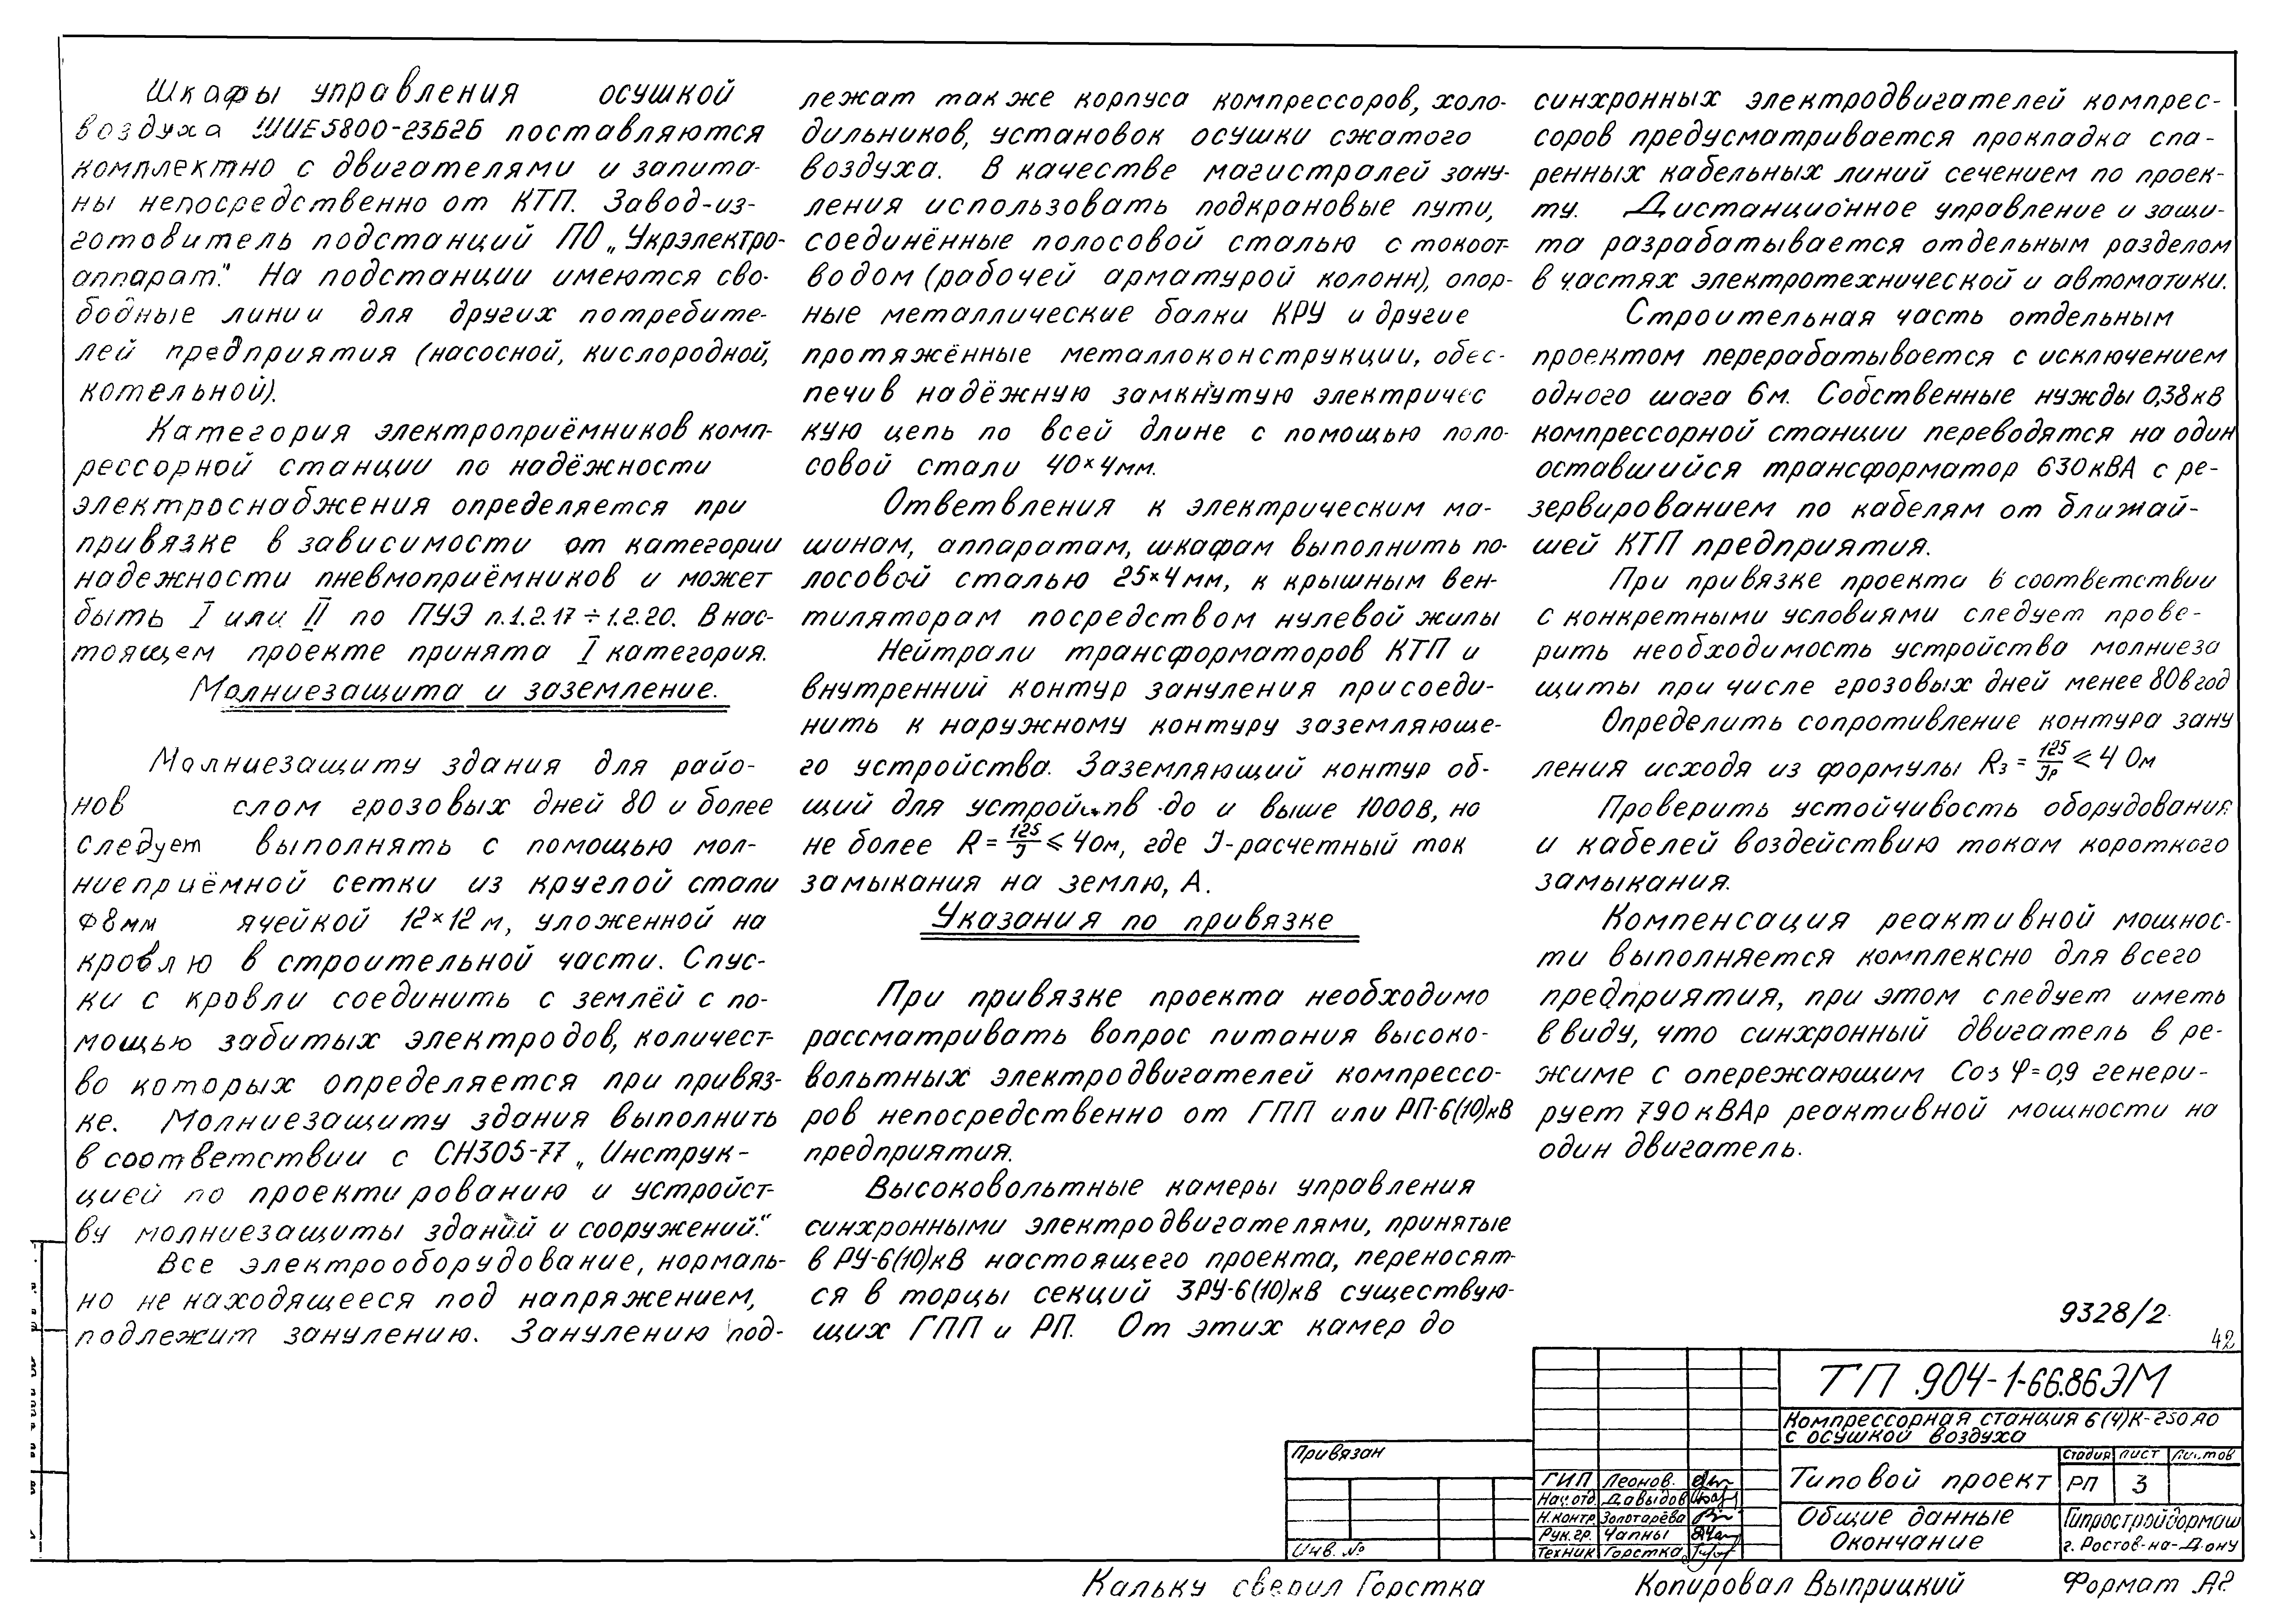 Шкафы управления осушкой
воздуха ШИЕ5800-23Б2Б поставляются
комплектно с двигателями и запита-
ны непосредственно от КТП. Завод-из-
готовитель подстанций ПО „Укрэлектро-
аппарат". На подстанции имеются сво-
бодные линии для других потребите-
лей предприятия (насосной, кислородной,
котельной).
Категория электроприёмников комп-
рессорной станции по надёжности
электроснабжения определяется при
привязке в зависимости от категории
надежности пневмоприёмников и может
быть I или II по ПУЭ п.1.2.17÷1.2.20. В нас-
тоящем проекте принята I категория.
Молниезащита и заземление.
Молниезащиту здания для райо-
нов слом грозовых дней 80 и более
следует выполнять с помощью мол-
ниеприёмной сетки из круглой стали
Ф8мм ячейкой 12×12 м, уложенной на
кровлю в строительной части. Спус-
ки с кровли соединить с землёй с по-
мощью забитых электродов, количест-
во которых определяется при привяз-
ке. Молниезащиту здания выполнить
в соответствии с СН305-77 „Инструк-
цией по проектированию и устройст-
ву молниезащиты зданий и сооружений."
Все электрооборудование, нормаль-
но не находящееся под напряжением,
подлежит занулению. Занулению под-
лежат также корпуса компрессоров, холо-
дильников, установок осушки сжатого
воздуха. В качестве магистралей зану-
ления использовать подкрановые пути,
соединённые полосовой сталью с токоот-
водом (рабочей арматурой колонн), опор-
ные металлические балки КРУ и другие
протяжённые металлоконструкции, обес-
печив надёжную замкнутую электричес
кую цепь по всей длине с помощью поло-
совой стали 40×4мм.
Ответвления к электрическим ма-
шинам, аппаратам, шкафам выполнить по-
лосовой сталью 25×4мм, к крышным вен-
тиляторам посредством нулевой жилы
Нейтрали трансформаторов КТП и
внутренний контур зануления присоеди-
нить к наружному контуру заземляюще-
го устройства. Заземляющий контур об-
щий для устройств до и выше 1000В, но
не более R = 125/J ≤ 4Ом, где J-расчетный ток
замыкания на землю, А.
Указания по привязке
При привязке проекта необходимо
рассматривать вопрос питания высоко-
вольтных электродвигателей компрессо-
ров непосредственно от ГПП или РП-6(10)кВ
предприятия.
Высоковольтные камеры управления
синхронными электродвигателями, принятые
в РУ-6(10)кВ настоящего проекта, переносят-
ся в торцы секций ЗРУ-6(10)кВ существую-
щих ГПП и РП. От этих камер до
синхронных электродвигателей компрес-
соров предусматривается прокладка спа-
ренных кабельных линий сечением по проек-
ту. Дистанционное управление и защи-
та разрабатывается отдельным разделом
в частях электротехнической и автоматики.
Строительная часть отдельным
проектом перерабатывается с исключением
одного шага 6м. Собственные нужды 0,38кВ
компрессорной станции переводятся на один
оставшийся трансформатор 630кВА с ре-
зервированием по кабелям от ближай-
шей КТП предприятия.
При привязке проекта в соответствии
с конкретными условиями следует прове-
рить необходимость устройства молниеза
щиты при числе грозовых дней менее 80в год
Определить сопротивление контура зану
ления исходя из формулы Rз = 125/Jр ≤ 4 Ом
Проверить устойчивость оборудования
и кабелей воздействию токам короткого
замыкания.
Компенсация реактивной мощнос-
ти выполняется комплексно для всего
предприятия, при этом следует иметь
ввиду, что синхронный двигатель в ре-
жиме с опережающим Cos φ=0,9 генери-
рует 790 кВАр реактивной мощности на
один двигатель.
9328/2
42
ТП 904-1-66.86 ЭМ
Компрессорная станция 6(4)К-250 АО
с осушкой воздуха
Типовой проект
Стадия Лист Листов
РП 3
Общие данные
Окончание
Гипростройдормаш
г. Ростов-на-Дону
Привязан
Инв. №
ГИП Леонов.
Нач.отд. Давыдов
Н.контр. Золотарёва
Рук.гр. Чапны
Техник Горстка
Кальку сверил Горстка
Копировал Выприцкий
Формат А2